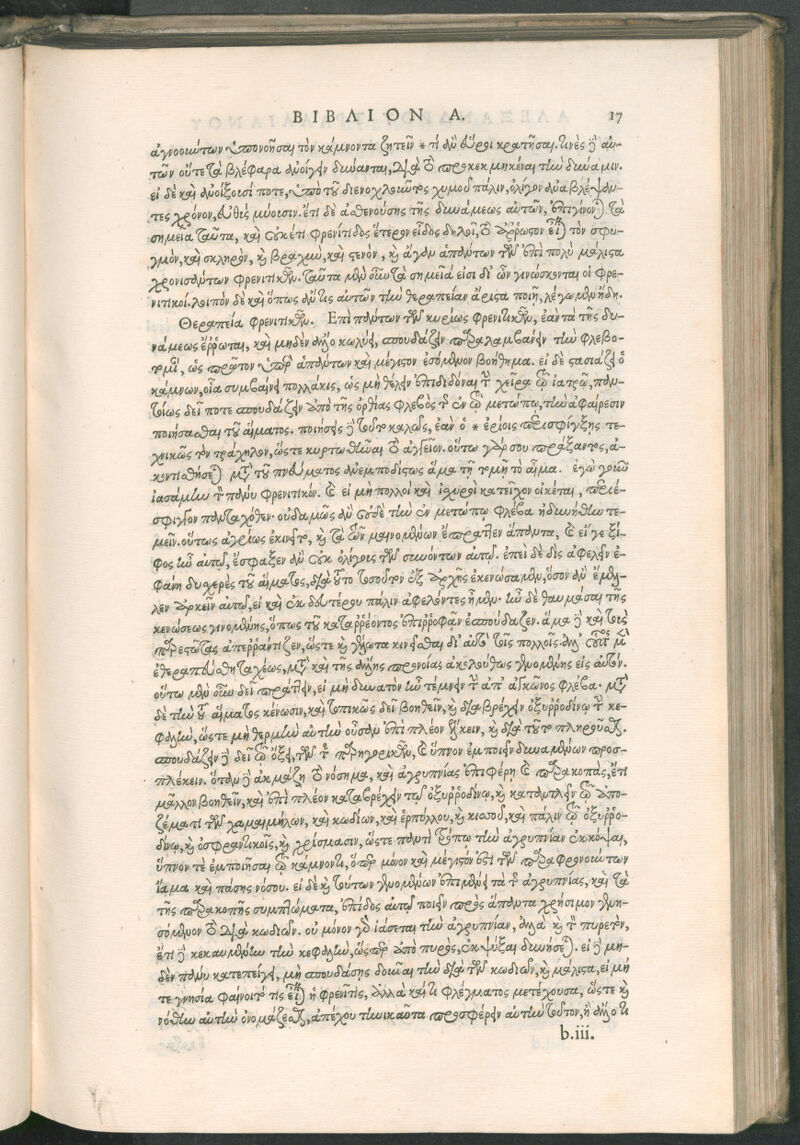 ΒΙΒΛΙΟΝ Α. 17
ἀγνοούντων ὑπονοῆσαι τὸν κάμνοντα ζητεῖν * τί ἂν εὕροι κρατῆσαι. τινὲς δὲ αὐ-
τῶν οὔτε τὰ βλέφαρα ἀνοίγειν δύνανται, διὰ τὸ προκεκμηκέναι τὴν δύναμιν.
εἰ δὲ καὶ ἀνοίξουσί ποτε, ὑπὸ τοῦ διενοχλοῦντος χυμοῦ πάλιν, ὀλίγον ἀναβλέψαν-
τες χρόνον, εὐθὺς μύουσιν. ἔτι δὲ ἀσθενούσης τῆς δυνάμεως αὐτῶν, ἐπιγίνονται τὰ
σημεῖα ταῦτα, καὶ οὐκέτι φρενίτιδος ἕτερον εἶδος δηλοῖ, τὸ ἄρρωστον εἶναι τὸν σφυ-
γμὸν, καὶ σκληρὸν, καὶ βραχὺν, καὶ στενὸν, καὶ ἄγαν ἁπάντων τῶν ἐπὶ πολὺ μάλιστα
χρονισάντων φρενιτικῶν. ταῦτα μὲν οὖν τὰ σημεῖά εἰσι δι' ὧν γινώσκονται οἱ φρε-
νιτικοί. λοιπὸν δὲ καὶ ὅπως ἄν τις αὐτῶν τὴν θεραπείαν ἄριστα ποιῇ, λέγωμεν ἤδη.
Θεραπεία φρενιτικῶν. Ἐπὶ πάντων τῶν κυρίως φρενιτικῶν, ἐὰν τὰ τῆς δυ-
νάμεως ἔρρωται, καὶ μηδὲν ἄλλο κωλύῃ, σπουδάζειν παραλαμβάνειν τὴν φλεβο-
τομίαν, ὡς πρῶτον ὑπὲρ ἁπάντων καὶ μέγιστον ἐσόμενον βοήθημα. εἰ δὲ στασιάζῃ ὁ
κάμνων, οἷα συμβαίνει πολλάκις, ὡς μὴ θέλειν ἐπιδιδόναι τὴν χεῖρα τῷ ἰατρῷ, παν-
τοίως δεῖ ποτε σπουδάζειν ἀπὸ τῆς ὀρθίας φλεβὸς τῆς ἐν τῷ μετώπῳ, τὴν ἀφαίρεσιν
ποιήσασθαι τοῦ αἵματος. ποιήσεις δὲ τοῦτο καλῶς, ἐὰν ὁ * ἐρίοις περισφίγξῃς τε-
χνικῶς τὸν τράχηλον, ὥστε κυρτωθῆναι τὸ ἀγγεῖον. οὕτω γάρ σου πράξαντος, ἀ-
κοντισθήσεται μετὰ τοῦ πνεύματος ἀνεμποδίστως ἅμα τῇ τομῇ τὸ αἷμα. ἐγὼ γοῦν
ἰασάμην τινὰ πάνυ φρενιτικόν. καὶ εἰ μὴ πολλοὶ καὶ ἰσχυροὶ κατεῖχον οἰκέται, περιέ-
σφιγγον πανταχόθεν· οὐδαμῶς ἂν οὐδὲ τὴν ἐν μετώπῳ φλέβα ἠδυνήθην τε-
μεῖν. οὕτως ἀγρίως ἐκινεῖτο, καὶ τὰ τῶν μαινομένων ἔπραττεν ἅπαντα, καὶ εἴγε ξί-
φος ἦν αὐτῷ, ἔσφαξεν ἂν οὐκ ὀλίγους τῶν συνόντων αὐτῷ. ἐπεὶ δὲ δὶς ἀφελεῖν ἐ-
φάνη δυσχερὲς τοῦ αἵματος, διὰ τοῦτο τοσοῦτον ἐξ ἀρχῆς ἐκενώσαμεν, ὅσον ἂν ἔμελ-
λεν ἀρκεῖν αὐτῷ, εἰ καὶ ἐκ δευτέρου πάλιν ἀφελόντες ἦμεν· ἦν δὲ θαυμάσαι τῆς
κενώσεως γινομένης, ὅπως τοῦ καταρρέοντος ἐπιρροφᾶν ἐσπούδαζεν. ἅμα δὲ καὶ τοὺς
παρεστῶτας ἀπερράντιζεν, ὥστε καὶ γέλωτα κινεῖσθαι δι' αὐτὸ τοῖς πολλοῖς. ἀλλ' οὗτος μὲν
ἐθεραπεύθη ταχέως, μετὰ καὶ τῆς ἄλλης προνοίας ἀκολούθως γενομένης εἰς αὐτόν.
οὕτω μὲν οὖν δεῖ πράττειν, εἰ μὴ δυνατὸν ἦν τέμνειν τὴν ἀπ' ἀγκῶνος φλέβα· μετὰ
δὲ τὴν τοῦ αἵματος κένωσιν, καὶ τοπικῶς δεῖ βοηθεῖν, καὶ διαβρέχειν ὀξυρροδίνῳ τὴν κε-
φαλὴν, ὥστε μὴ θερμὴν αὐτὴν οὖσαν ἐπὶ πλέον ἕλκειν, καὶ διὰ τοῦτο πληροῦσθαι.
σπουδάζειν δὲ δεῖ τῷ ὄξει, τῶν τε παρηγορικῶν, καὶ ὕπνον ἐμποιεῖν δυναμένων προσ-
πλέκειν. ὅταν δὲ ἀκμάζῃ τὸ νόσημα, καὶ ἀγρυπνίας ἐπιφέρῃ καὶ παρακοπὰς, ἔτι
μᾶλλον βοηθεῖν, καὶ ἐπὶ πλέον καταβρέχειν τῷ ὀξυρροδίνῳ, καὶ καταντλεῖν τῷ ἀπο-
ζέματι τῶν χαμαιμήλων, καὶ κωδίων, καὶ ἑρπύλλου, καὶ κισσοῦ, καὶ πάλιν τῷ ὀξυρρο-
δίνῳ, καὶ ὀσφραντικοῖς, καὶ χρίσμασιν, ὥστε παντὶ τρόπῳ τὴν ἀγρυπνίαν ἐκκόψαι,
ὕπνον τὲ ἐμποιῆσαι τῷ κάμνοντι, ὅπερ μόνον καὶ μέγιστόν ἐστι τῶν παραφρονούντων
ἴαμα καὶ πάσης νόσου. εἰ δὲ καὶ τούτων γενομένων ἐπιμένει τὰ τῆς ἀγρυπνίας, καὶ τὰ
τῆς παρακοπῆς συμπτώματα, ἐπίδος αὐτῷ ποιεῖν πρὸς ἅπαντα χρήσιμον γενη-
σόμενον τὸ διὰ κωδιῶν. οὐ μόνον γὰρ ἰάσεται τὴν ἀγρυπνίαν, ἀλλὰ καὶ τὸν πυρετὸν,
ἔτι δὲ κεκαυμένην τὴν κεφαλὴν, ὥσπερ ἀπὸ πυρὸς, ἐκψύξαι δυνήσεται. εἰ δὲ μη-
δὲν πάνυ κατεπείγῃ, μὴ σπουδάσῃς δοῦναι τὴν διὰ τῶν κωδιῶν, καὶ μάλιστα, εἰ μή
τε γνησία φαίνοιτό τις εἶναι ἡ φρενῖτις, ἀλλὰ καί τι φλέγματος μετέχουσα, ὥστε καὶ
νόθην αὐτὴν ὀνομάζεσθαι, ἀπέχου τηνικαῦτα προσφέρειν αὐτὴν τοῦτον, ἢ ἄλλο τι
b.iii.